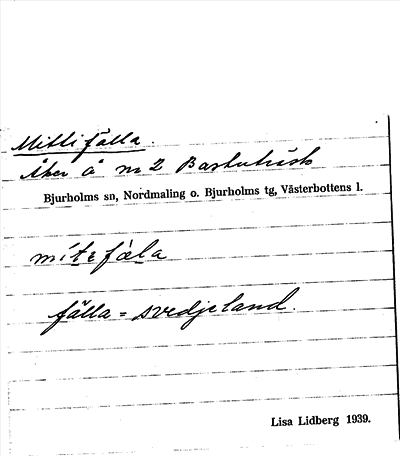 Mittifälla.
Åker å nr 2 Bastuträsk
Bjurholms sn, Nordmaling o. Bjurholms tg, Västerbottens l.
mítɛfæla
fälla = svedjeland.
Lisa Lidberg 1939.